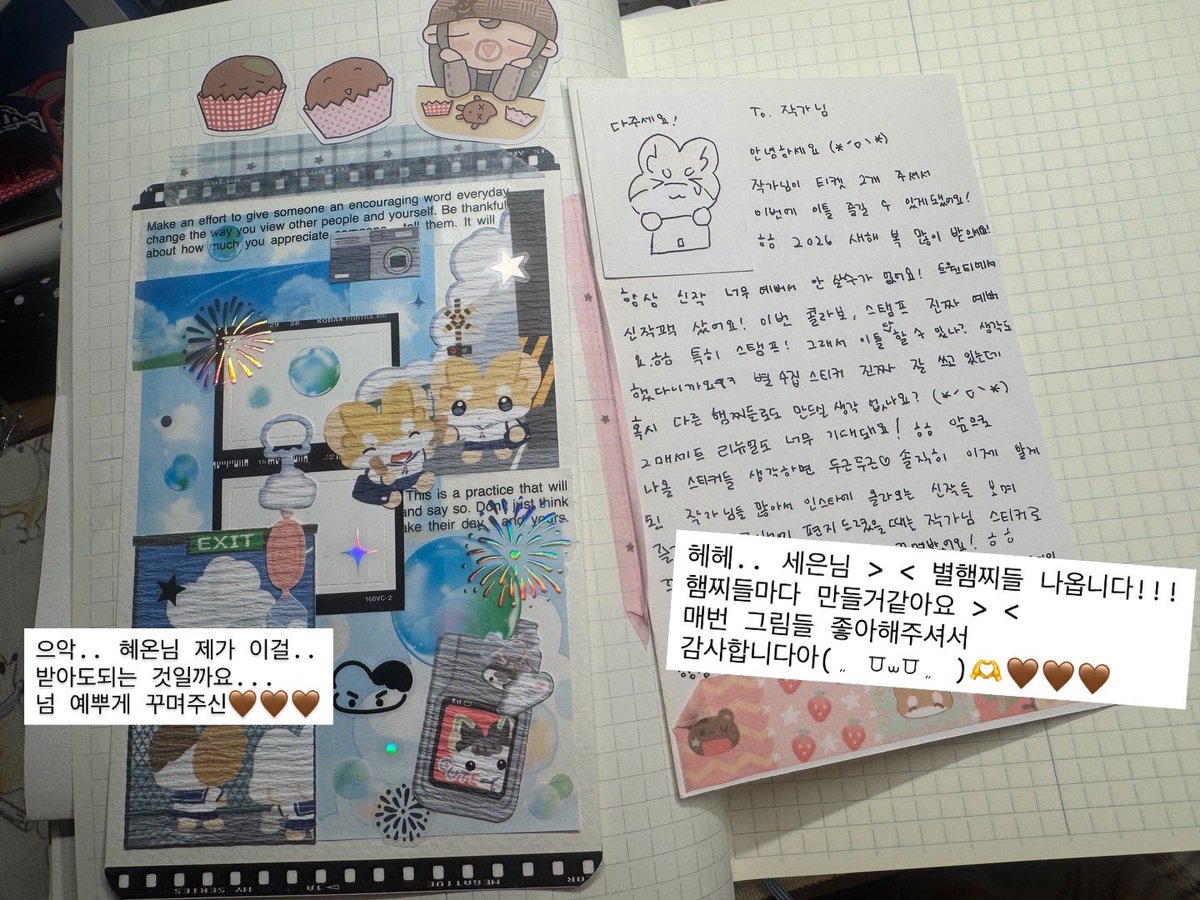 Make an effort to give someone an encouraging word everyday
change the way you view other people and yourself. Be thankful
about how much you appreciate someone tell them. It will
KODAK PORTRA 400
This is a practice that will
and say so. Don't just think
ake their day and yours.
160VC-2
EXIT
으악.. 혜온님 제가 이걸..
받아도되는 것일까요...
넘 예쁘게 꾸며주신🤎🤎🤎
NEGATIVE
MY SERIES
다주세요!
To. 작가님
안녕하세요 (*´ㅁ`*)
작가님이 티켓 2개 주셔서
이번에 이틀 즐길 수 있게됐어요!
ㅎㅎ 2026 새해 복 많이 받아요!
항상 신작 너무 예뻐서 안 살수가 없어요!
신작팩 샀어요! 이번 콜라보, 스탬프 진짜 예뻐
요.ㅎㅎ 특히 스탬프! 그래서 이틀 할 수 있나? 생각도
했다니까요ㅋㅋ 별 수집 스티커 진짜 잘 쓰고 있는데
혹시 다른 햄찌들로도 만드실 생각 없나요? (*´ㅁ`*)
고매세트 리뉴얼도 너무 기대돼요! ㅎㅎ 앞으로
나올 스티커들 생각하면 두근두근♡ 솔직히 이게 알게
된 작가님들 많아서 인스타에 올라오는 신작들 보며
편지 드렸을 때는 작가님 스티커로
헤헤.. 세은님 > < 별햄찌들 나옵니다!!!
햄찌들마다 만들거같아요 > <
매번 그림들 좋아해주셔서
감사합니다아( ⸝⸝ ᴗ̈ ⸝⸝ )🫶🤎🤎🤎